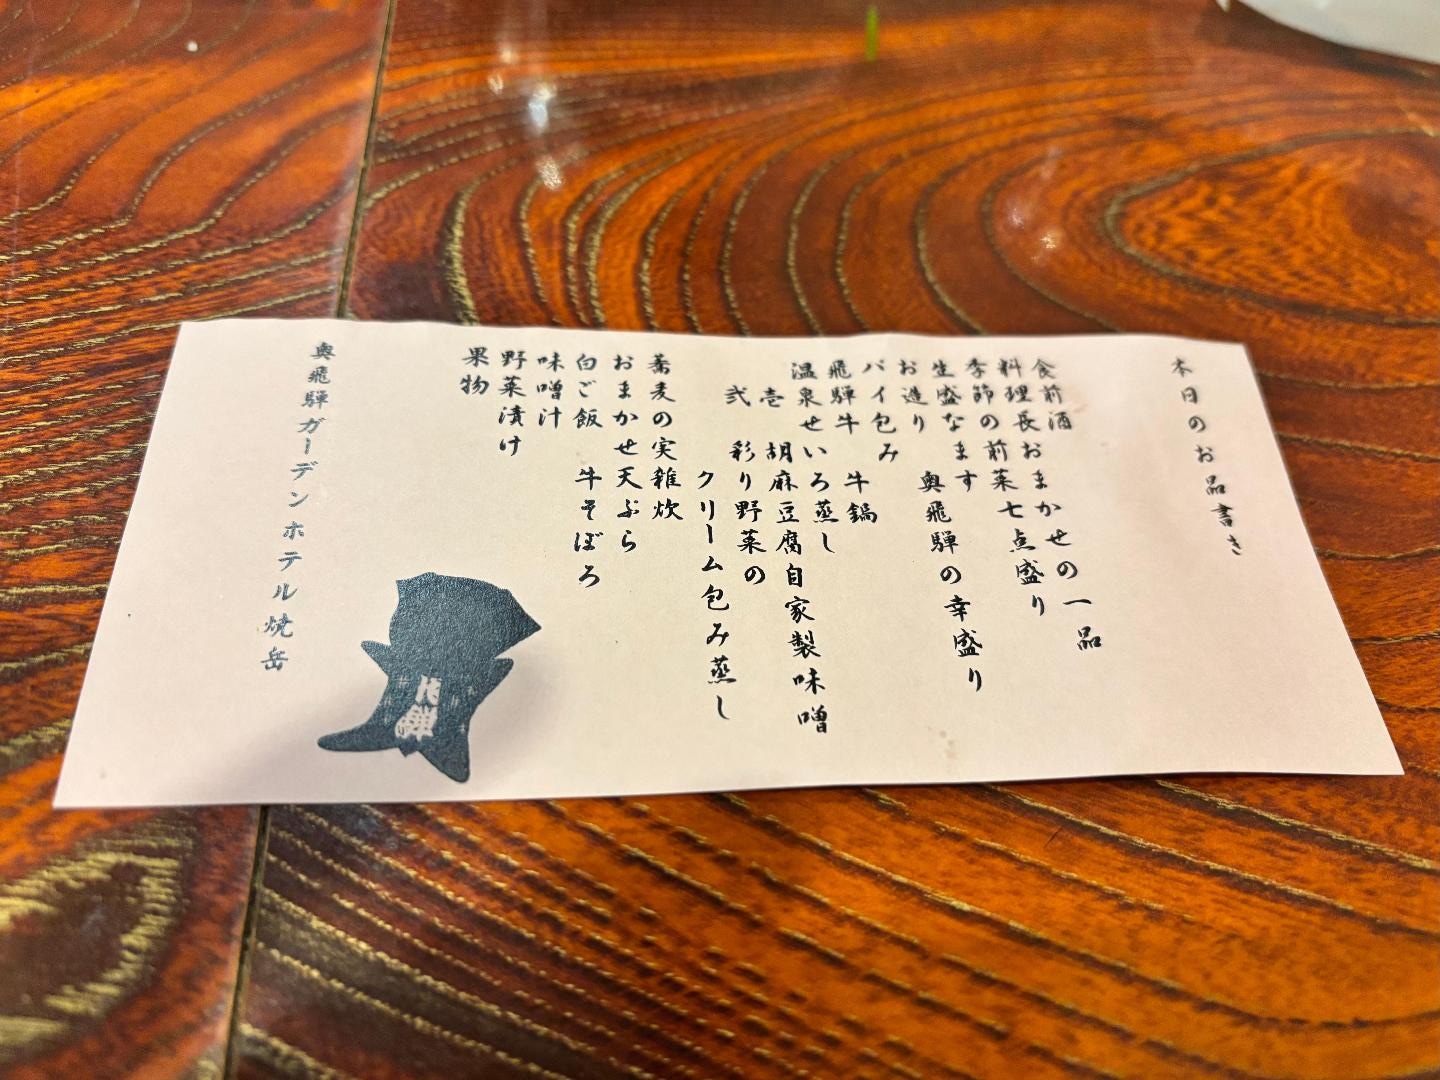 本日のお品書き
食前酒
料理長おまかせの一品
季節の前菜七点盛り
生盛なます
お造り 奥飛騨の幸盛り
パイ包み
飛騨牛 牛鍋
温泉せいろ蒸し
壱 胡麻豆腐自家製味噌
弐 彩り野菜の
クリーム包み蒸し
蕎麦の実雑炊
おまかせ天ぷら
白ご飯 牛そぼろ
味噌汁
野菜漬け
果物
奥飛騨ガーデンホテル焼岳